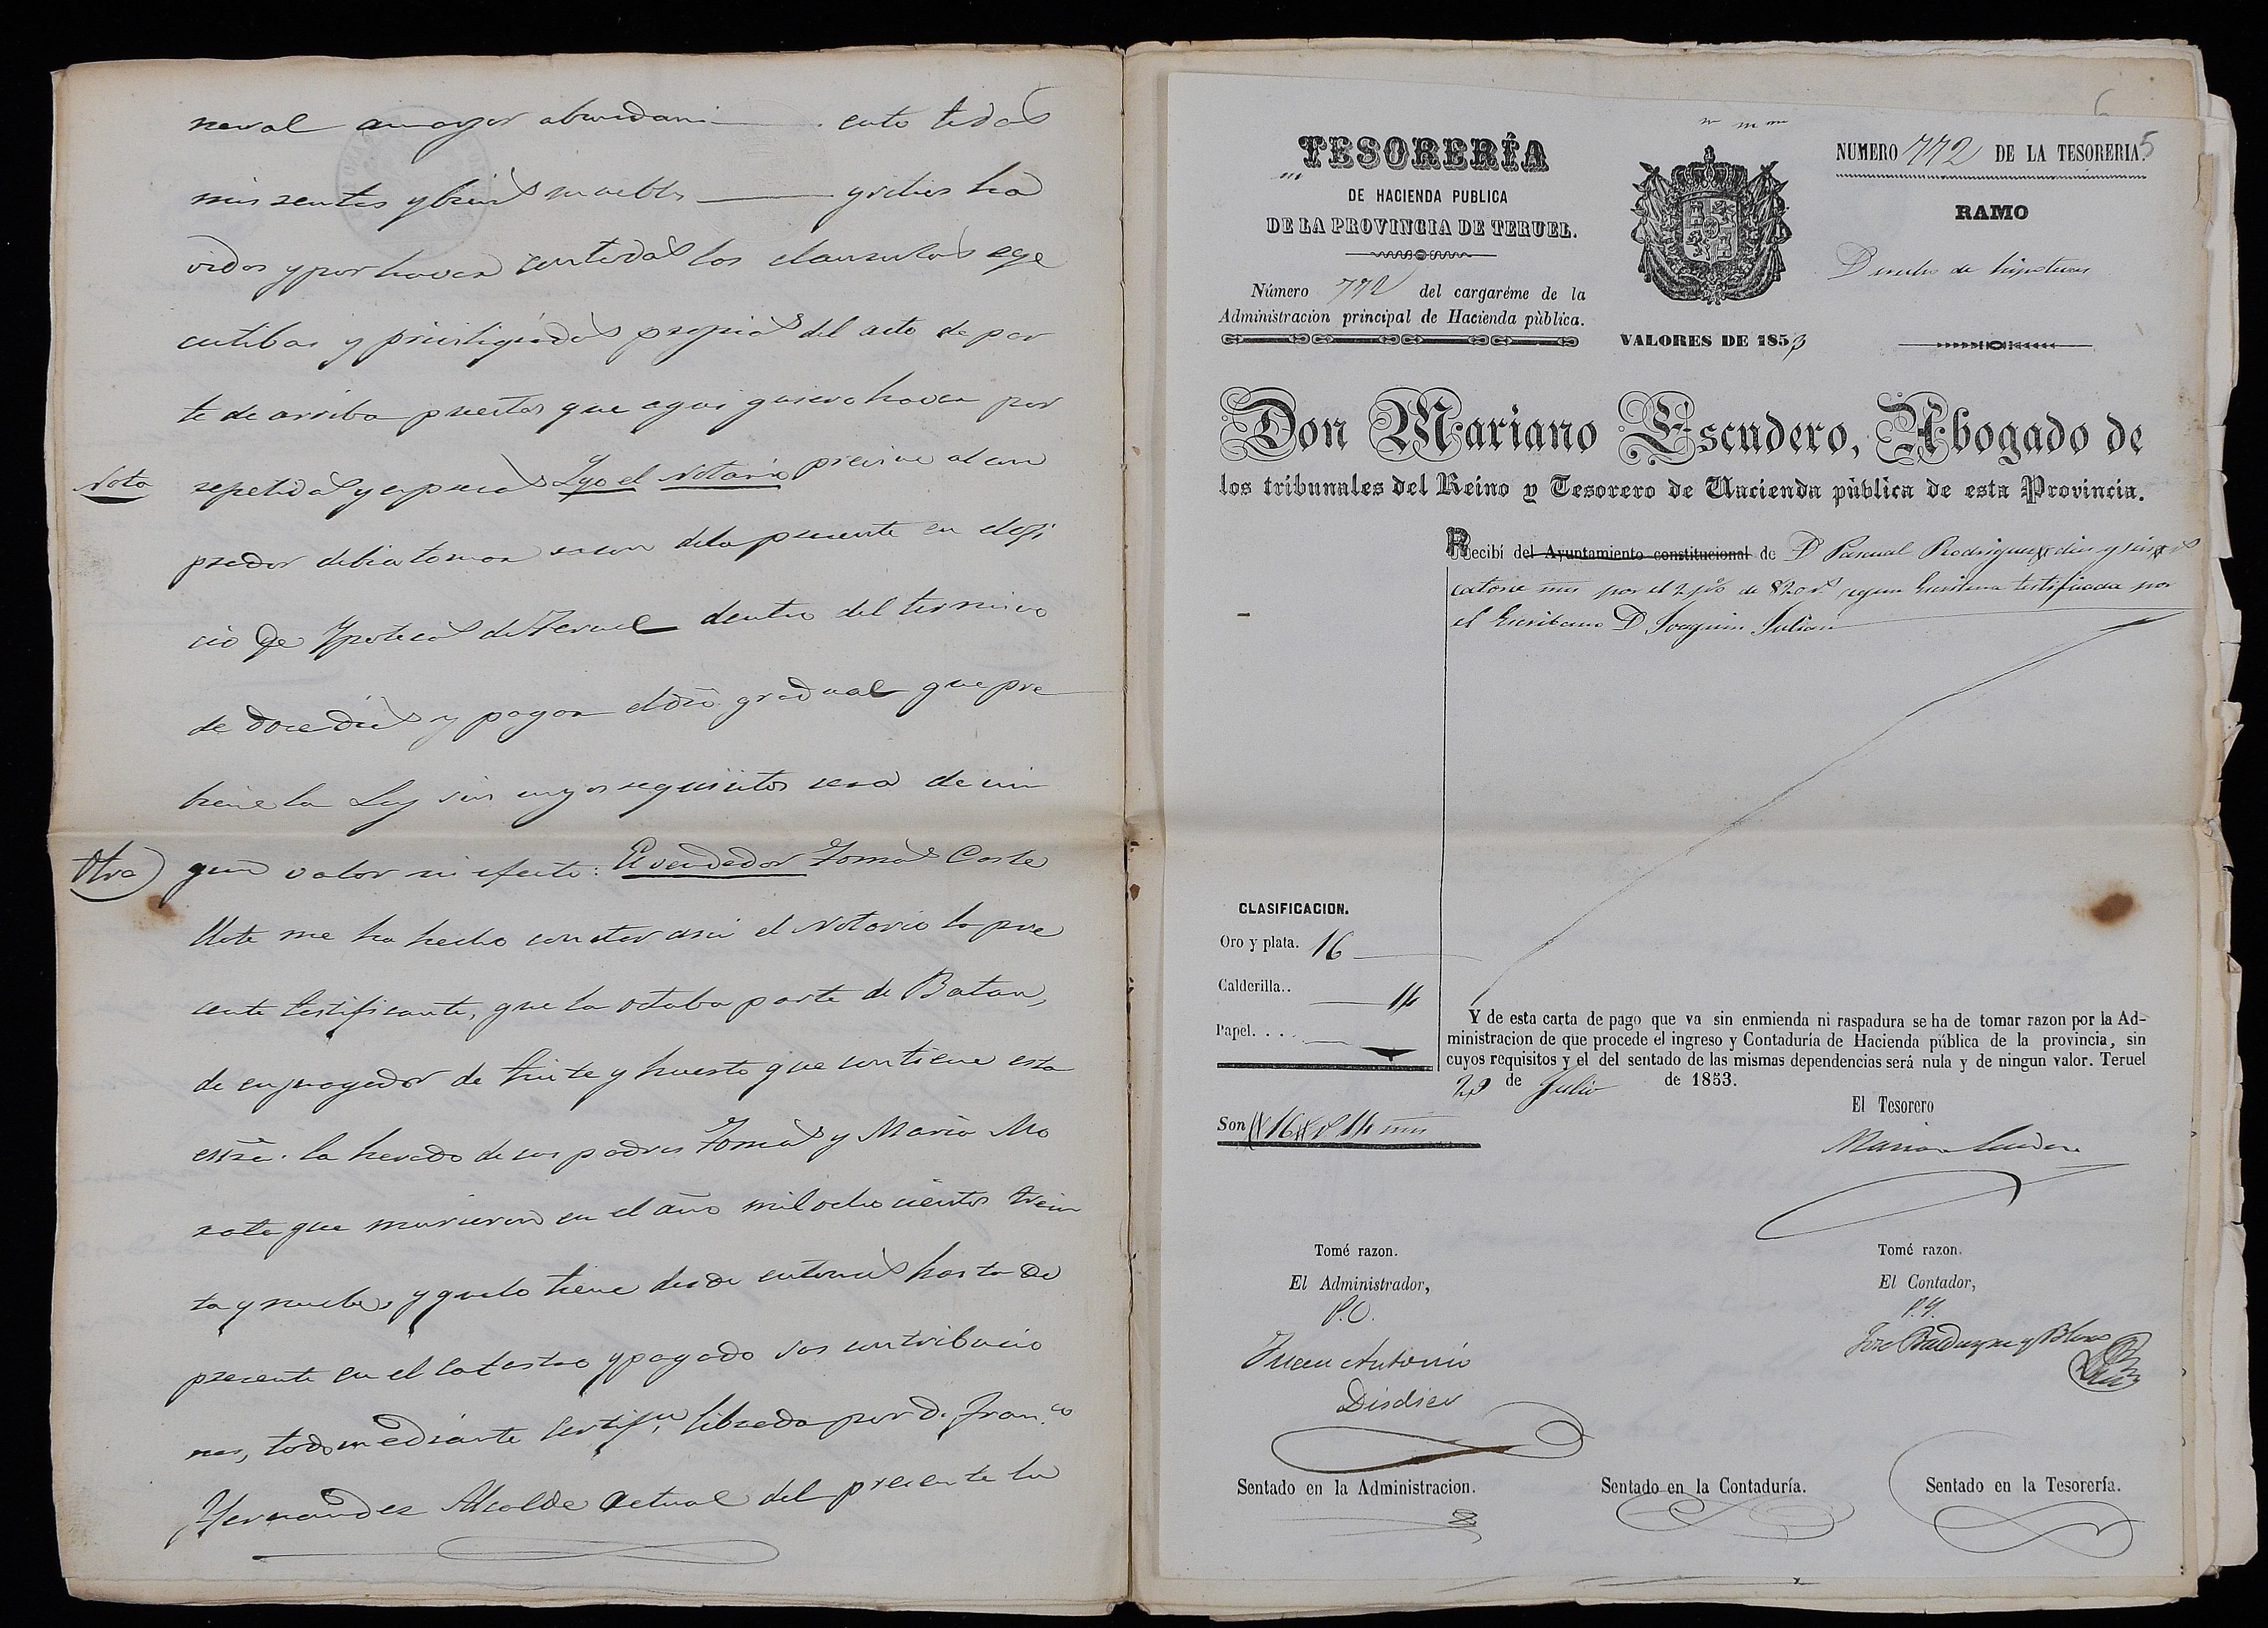 neral a mayor abundami cuto todos
mis rentas y bienes muebles y sitios ha
vidos y por haver con todas las clausulas ege
cutibas y pribilegiadas propias del acto de par
te de arriba puestas que aqui quiero haver por
Nota
repetidas y expresas Yo el Notario previne al com
prador debia tomar razon de la presente en el ofi
cio de Ypotecas de Teruel dentro del termino
de doce dias y pagar el dro gradual que pre
biene la Ley sin cuyos requisitos sera de nin
Otra
gun valor ni efecto: El vendedor Tomas Caste
llote me ha hecho constar asi el Notario la pre
sente testificante, que la octaba parte de Batan,
de enjuagador de tinte y huerto que contiene esta
essra. la heredo de sus padres Tomas y Maria Mo
rata que murieron en el año mil ocho cientos trein
ta y nuebe, y que lo tiene desde entonces hasta de
presente en el catastro y pagado sus contribucio
nes, todo mediante certifon. librada por D. Franco
Hernandez Alcalde actual del presente lu
TESORERÍA
DE HACIENDA PUBLICA
DE LA PROVINCIA DE TERUEL.
Número 772 del cargaréme de la
Administracion principal de Hacienda pùblica.
VALORES DE 1853
5
NUMERO 772 DE LA TESORERIA.
RAMO
Derecho de hipotecas
Don Mariano Escudero, Abogado de
los tribunales del Reino y Tesorero de Hacienda pùblica de esta Provincia.
Recibí del Ayuntamiento constitucional de D Pascual Rodriguez diez y seis rs
catorce mrs por el 2 p% de 820 rs segun Escritura testificada por
el Escribano D Joaquin Julian
CLASIFICACION.
Oro y plata. 16
Calderilla.. 14
Papel. . . .
Son # 16 rs 14 mrs
Y de esta carta de pago que va sin enmienda ni raspadura se ha de tomar razon por la Ad-
ministracion de que procede el ingreso y Contaduría de Hacienda pública de la provincia, sin
cuyos requisitos y el del sentado de las mismas dependencias será nula y de ningun valor. Teruel
29 de Julio de 1853.
El Tesorero
Mariano Escudero
Tomé razon.
El Administrador,
P.O.
Juan Antonio
Disdier
Tomé razon.
El Contador,
Jose
Sentado en la Administracion.
Sentado en la Contaduría.
Sentado en la Tesorería.